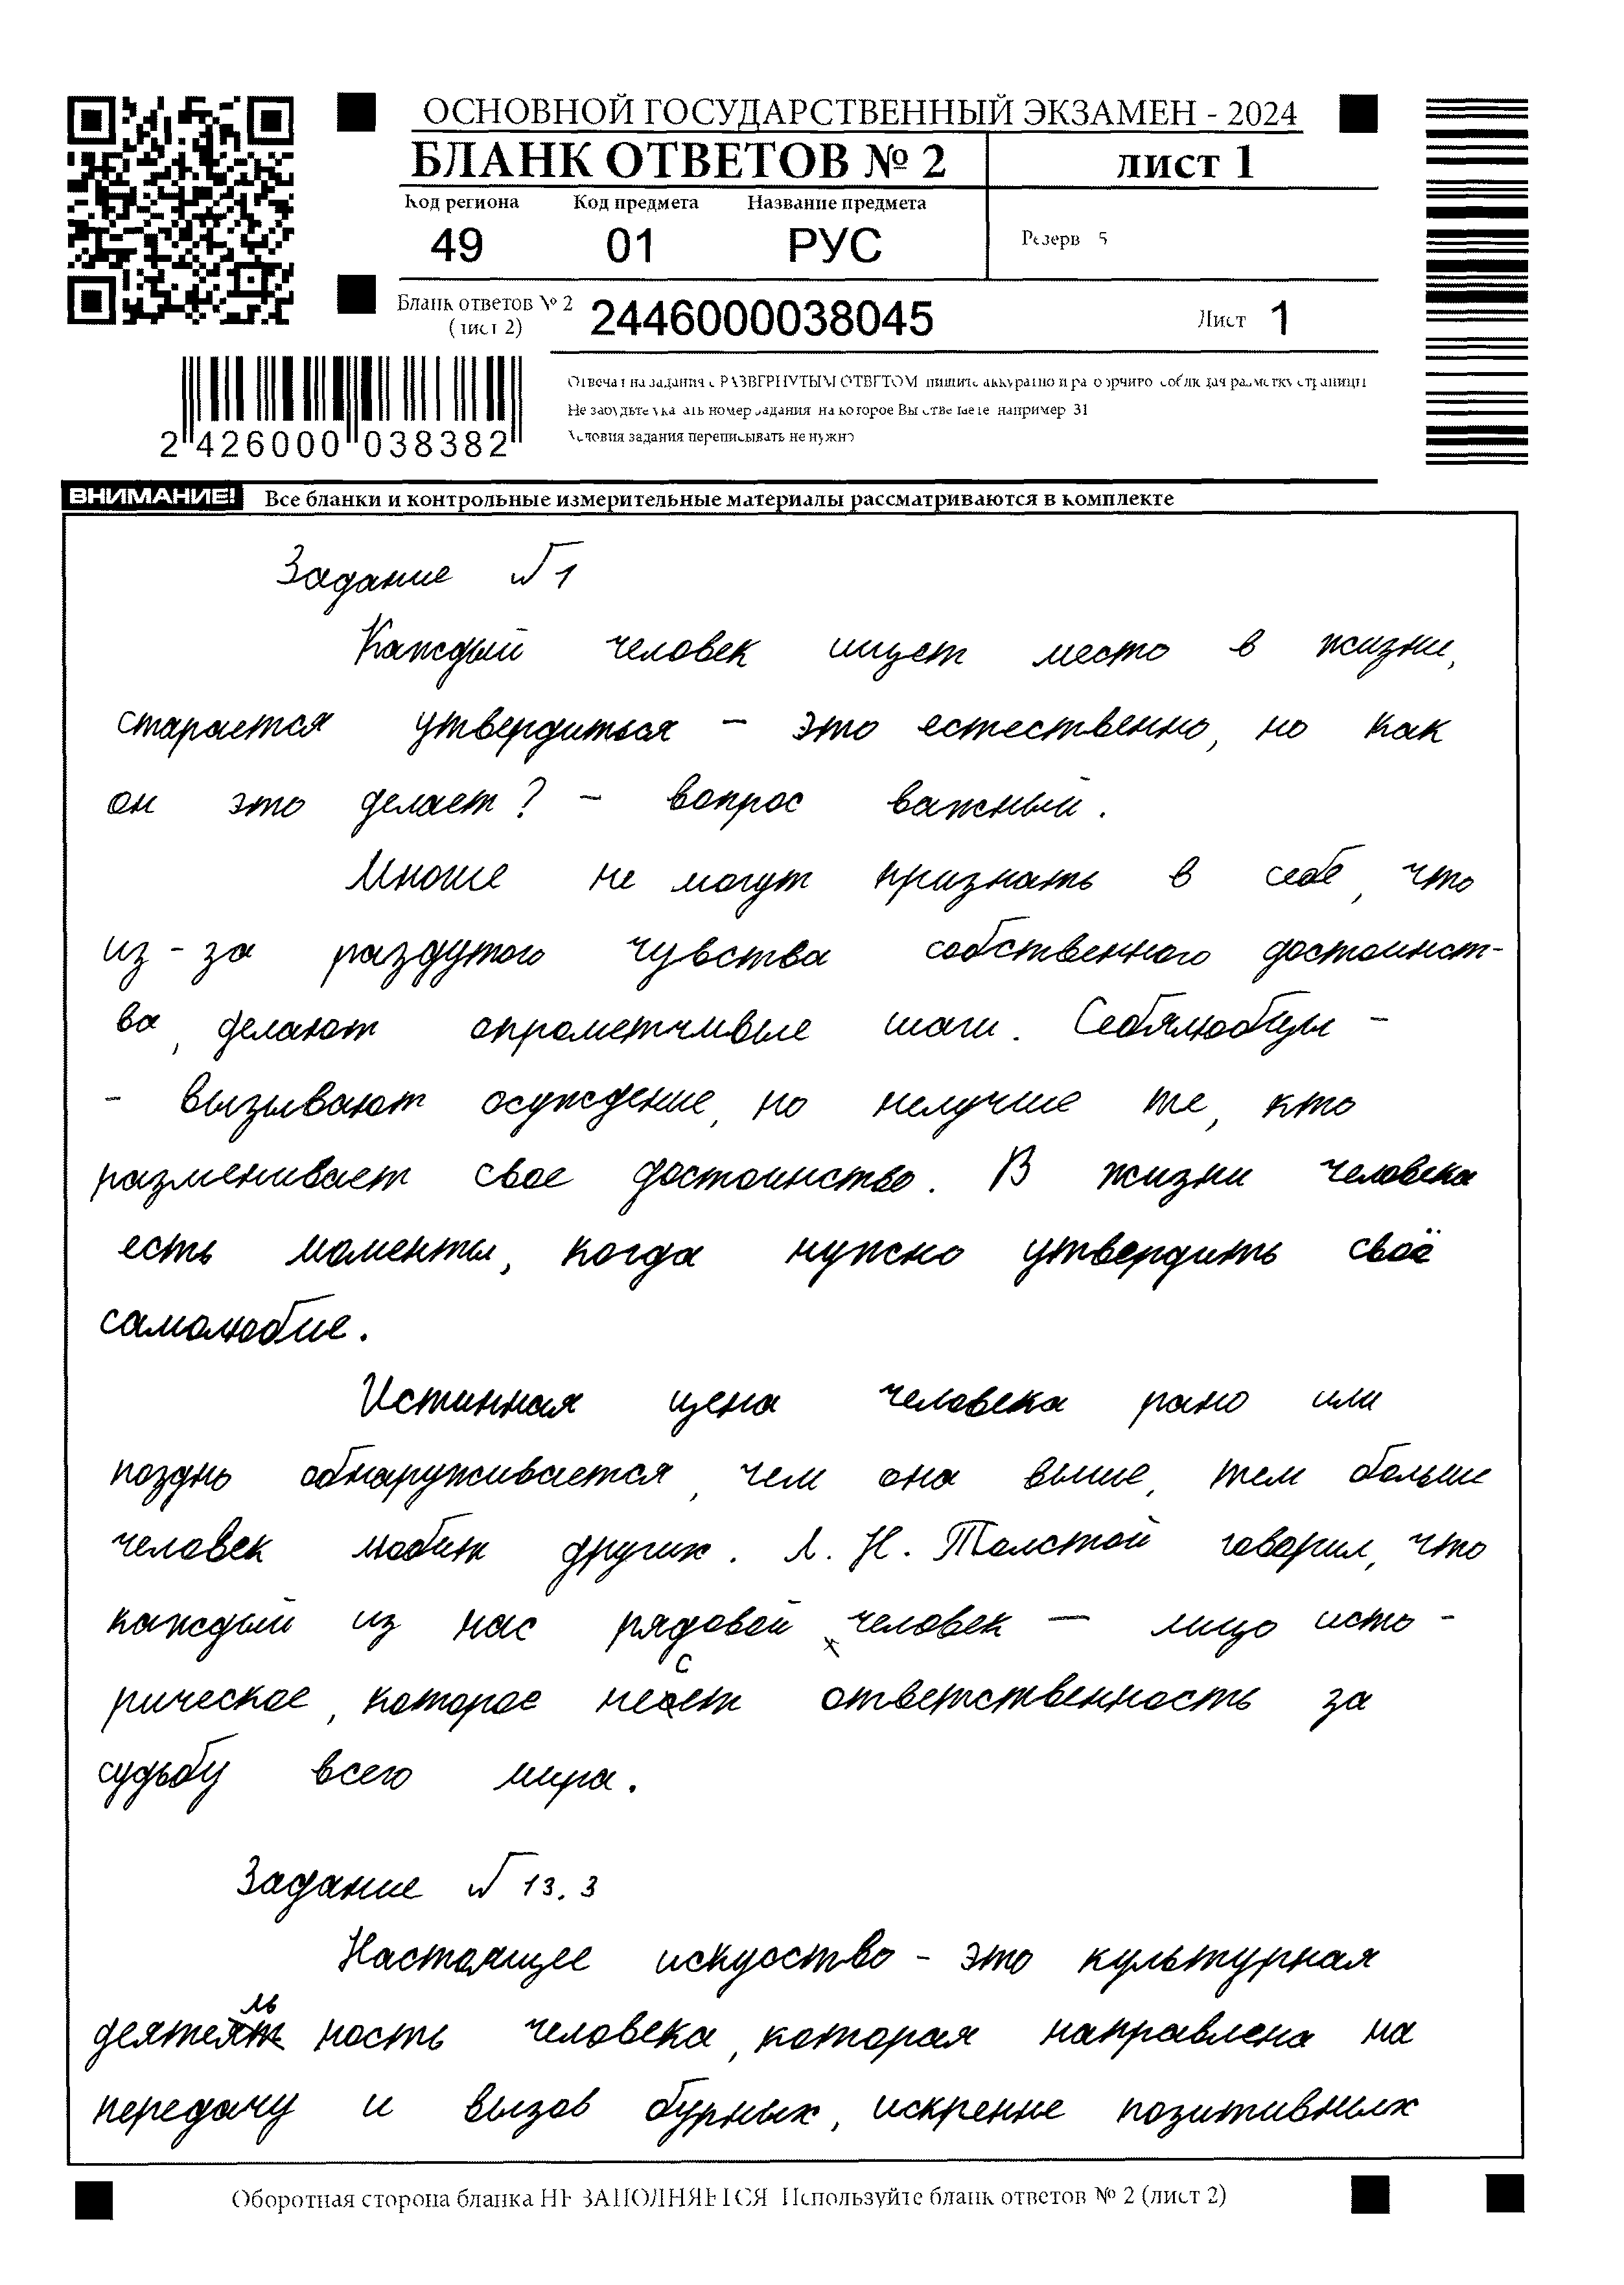 ОСНОВНОЙ ГОСУДАРСТВЕННЫЙ ЭКЗАМЕН - 2024
БЛАНК ОТВЕТОВ № 2
лист 1
Код региона Код предмета Название предмета
49 01 РУС
Резерв 5
Бланк ответов № 2
(лист 2)
2446000038045
Лист 1
2 426000 038382
Отвечая на задания с РАЗВЕРНУТЫМ ОТВЕТОМ пишите аккуратно и разборчиво соблюдая разметку страницы
Не забудьте указать номер задания на которое Вы отвечаете например 31
Условия задания переписывать не нужно
ВНИМАНИЕ! Все бланки и контрольные измерительные материалы рассматриваются в комплекте
Задание №1
Каждый человек ищет место в жизни,
старается утвердиться – это естественно, но как
он это делает? – вопрос важный.
Многие не могут признать в себе, что
из-за раздутого чувства собственного достоинст-
ва, делают опрометчивые шаги. Себялюбцы –
– вызывают осуждение, но нелучше те, кто
разменивает свое достоинство. В жизни человека
есть моменты, когда нужно утвердить своё
самолюбие.
Истинная цена человека рано или
поздно обнаруживается, чем она выше, тем больше
человек любит других. Л. Н. Толстой говорил, что
каждый из нас рядовой человек — лицо исто-
рическое, которое несет ответственность за
судьбу всего мира.
Задание № 13.3
Настоящее искусство – это культурная
деятельность человека, которая направлена на
передачу и вызов бурных, искренне позитивных
Оборотная сторона бланка НЕ ЗАПОЛНЯЕТСЯ Используйте бланк ответов № 2 (лист 2)